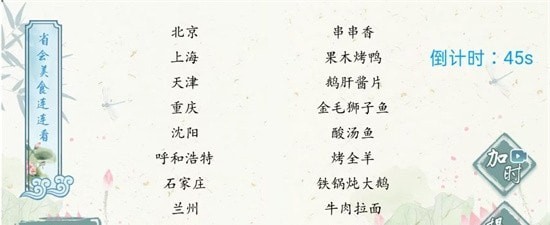 省会美食连连看
北京 串串香
上海 果木烤鸭
天津 鹅肝酱片
重庆 金毛狮子鱼
沈阳 酸汤鱼
呼和浩特 烤全羊
石家庄 铁锅炖大鹅
兰州 牛肉拉面
倒计时：45s
加时